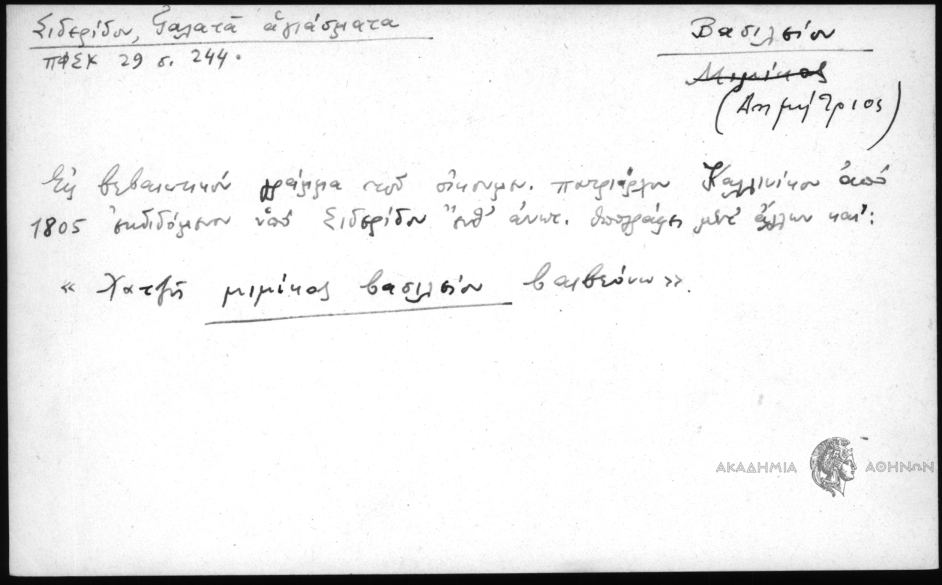 Ξιδερίδου, Γαλατᾶ ἁγιάσματα
ΠΦΣΚ 29 σ. 244.
Βασιλείου
Μιμίκος
(Δημήτριος)
Εἰς βεβαιωτικόν γράμμα τοῦ οἰκουμεν. πατριάρχου Καλλινίκου ἀπό
1805 ἐκδιδόμενον ὑπό Ξιδερίδου ἔνθ' ἀνωτ. ὑπογράφει μετ' ἄλλων καί:
« Χατζῆ μιμίκος βασιλείου βαιβεόνω».
ΑΚΑΔΗΜΙΑ ΑΘΗΝΩΝ